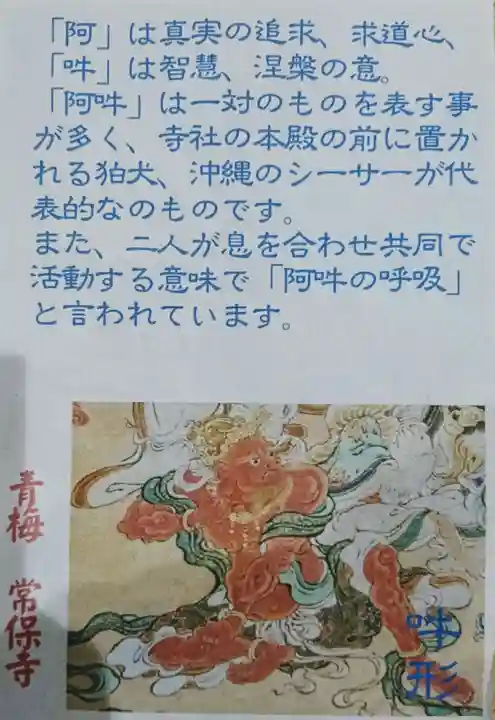 「阿」は真実の追求、求道心、
「吽」は智慧、涅槃の意。
「阿吽」は一対のものを表す事
が多く、寺社の本殿の前に置か
れる狛犬、沖縄のシーサーが代
表的なのものです。
また、二人が息を合わせ共同で
活動する意味で「阿吽の呼吸」
と言われています。
青梅 常保寺
吽形